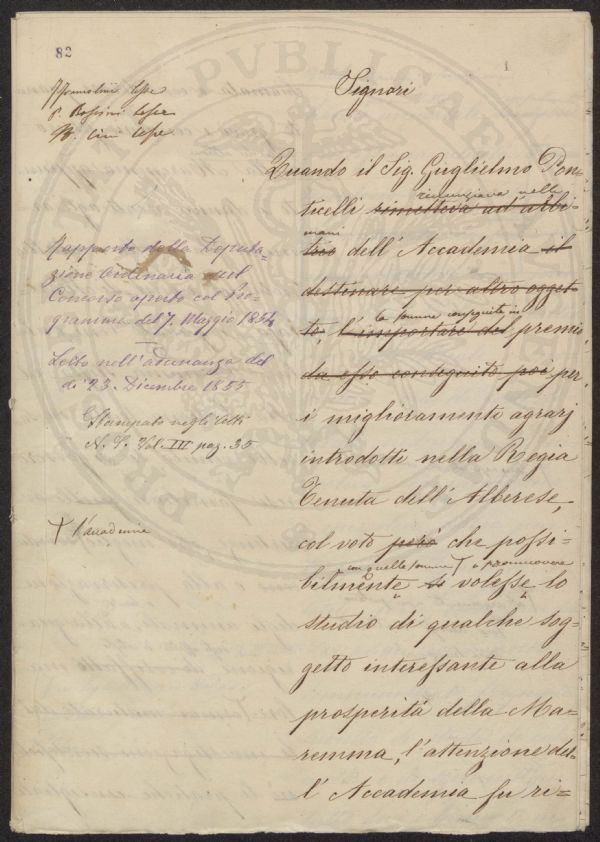 82
1
P. Rossini Cosp
Signori
Rapporto della Deputa-
zione Ordinaria sul
Concorso aperto col Pro-
gramma del 7. Maggio 1854
Letto nell'adunanza del
di 23. Dicembre 1855
Stampato negli Atti
N. S. Vol. III pag. 35
† l'accademia
Quando il Sig. Guglielmo Pon-
rinunziava nelle
ticelli rimetteva ad arbi-
mani
trio dell'Accademia il
destinare per altro ogget-
le somme conseguite in
to, l'importare del premio
da esso conseguito poi per
i miglioramenti agrarj
introdotti nella Regia
Tenuta dell'Alberese,
col voto però che possi-
con quelle somme † promuovere
bilmente si volesse lo
studio di qualche sog-
getto interessante alla
prosperità della Ma-
remma, l'attenzione del-
l'Accademia fu ri-
PUBLICAE